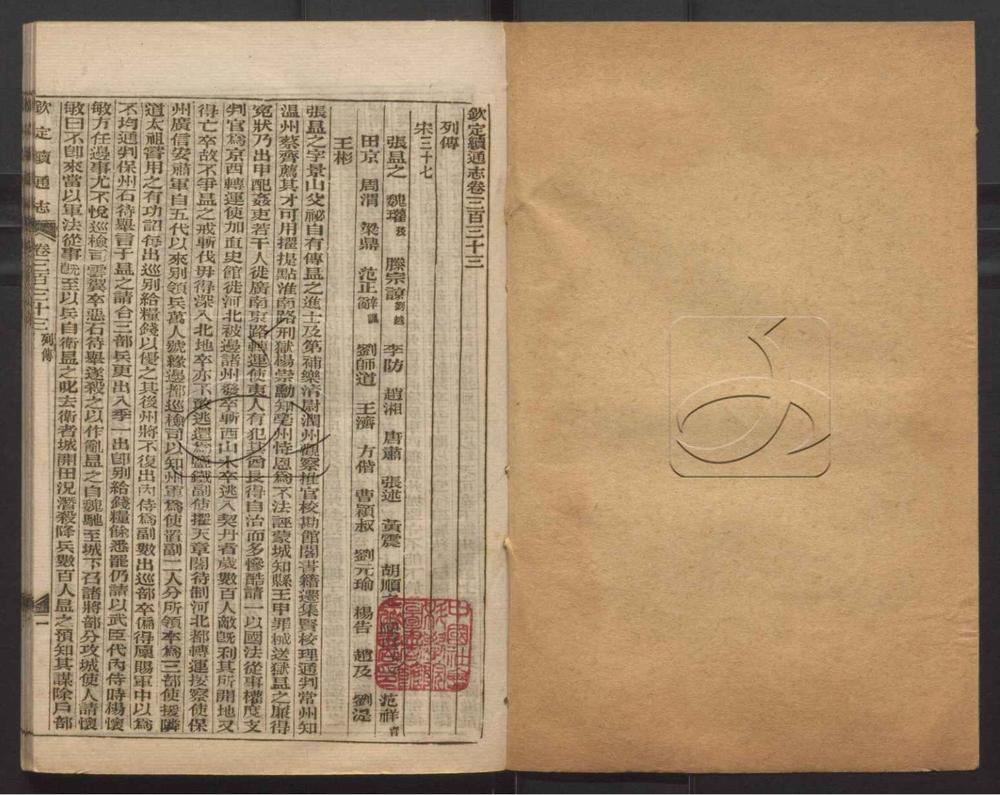 欽定續通志卷三百三十三
列傳
宋三十七
張昷之 魏瓘 滕宗諒 劉越 李防 趙湘 唐肅 張述 黃震 胡順之 范祥 育
田京 周渭 梁鼎 范正辭 諷 劉師道 王濟 方偕 曹穎叔 劉元瑜 楊告 趙及 劉湜
王彬
張昷之字景山父祕自有傳昷之進士及第補樂清尉潤州觀察推官校勘館閣書籍遷集賢校理通判常州知
溫州蔡齊薦其才可用擢提點淮南路刑獄楊崇勳知亳州恃恩爲不法誣蒙城知縣王申罪械送獄昷之廉得
冤狀乃出申配姦吏若干人徙廣南東路轉運使夷人有犯其酋長得自治而多慘酷請一以國法從事權度支
判官爲京西轉運使加直史館徙河北被邊諸州發卒斬西山木卒逃入契丹者歲數百人敵旣利其所開地又
得亡卒故不爭昷之戒斬伐毋得深入北地卒亦不敢逃還爲鹽鐵副使擢天章閣待制河北都轉運按察使保
州廣信安肅軍自五代以來別領兵萬人號緣邊都巡檢司以知州軍爲使置副二人分所領卒爲三部使援隣
道太祖嘗用之有功詔每出巡別給糧錢以優之其後州將不復出內侍爲副數出巡部卒偏得廩賜軍中以爲
不均通判保州石待舉言于昷之請合三部兵更出入季一出卽別給錢糧餘悉罷仍請以武臣代內侍時楊懷
敏方任邊事尤不悅巡檢司雲翼卒惡石待舉遂殺之以作亂昷之自魏馳至城下召諸將部分攻城使人請懷
敏曰不卽來當以軍法從事旣至以兵自衞昷之叱去衞者城開田況潛殺降兵數百人昷之預知其謀除戶部
欽定續通志 卷三百三十三 列傳 一